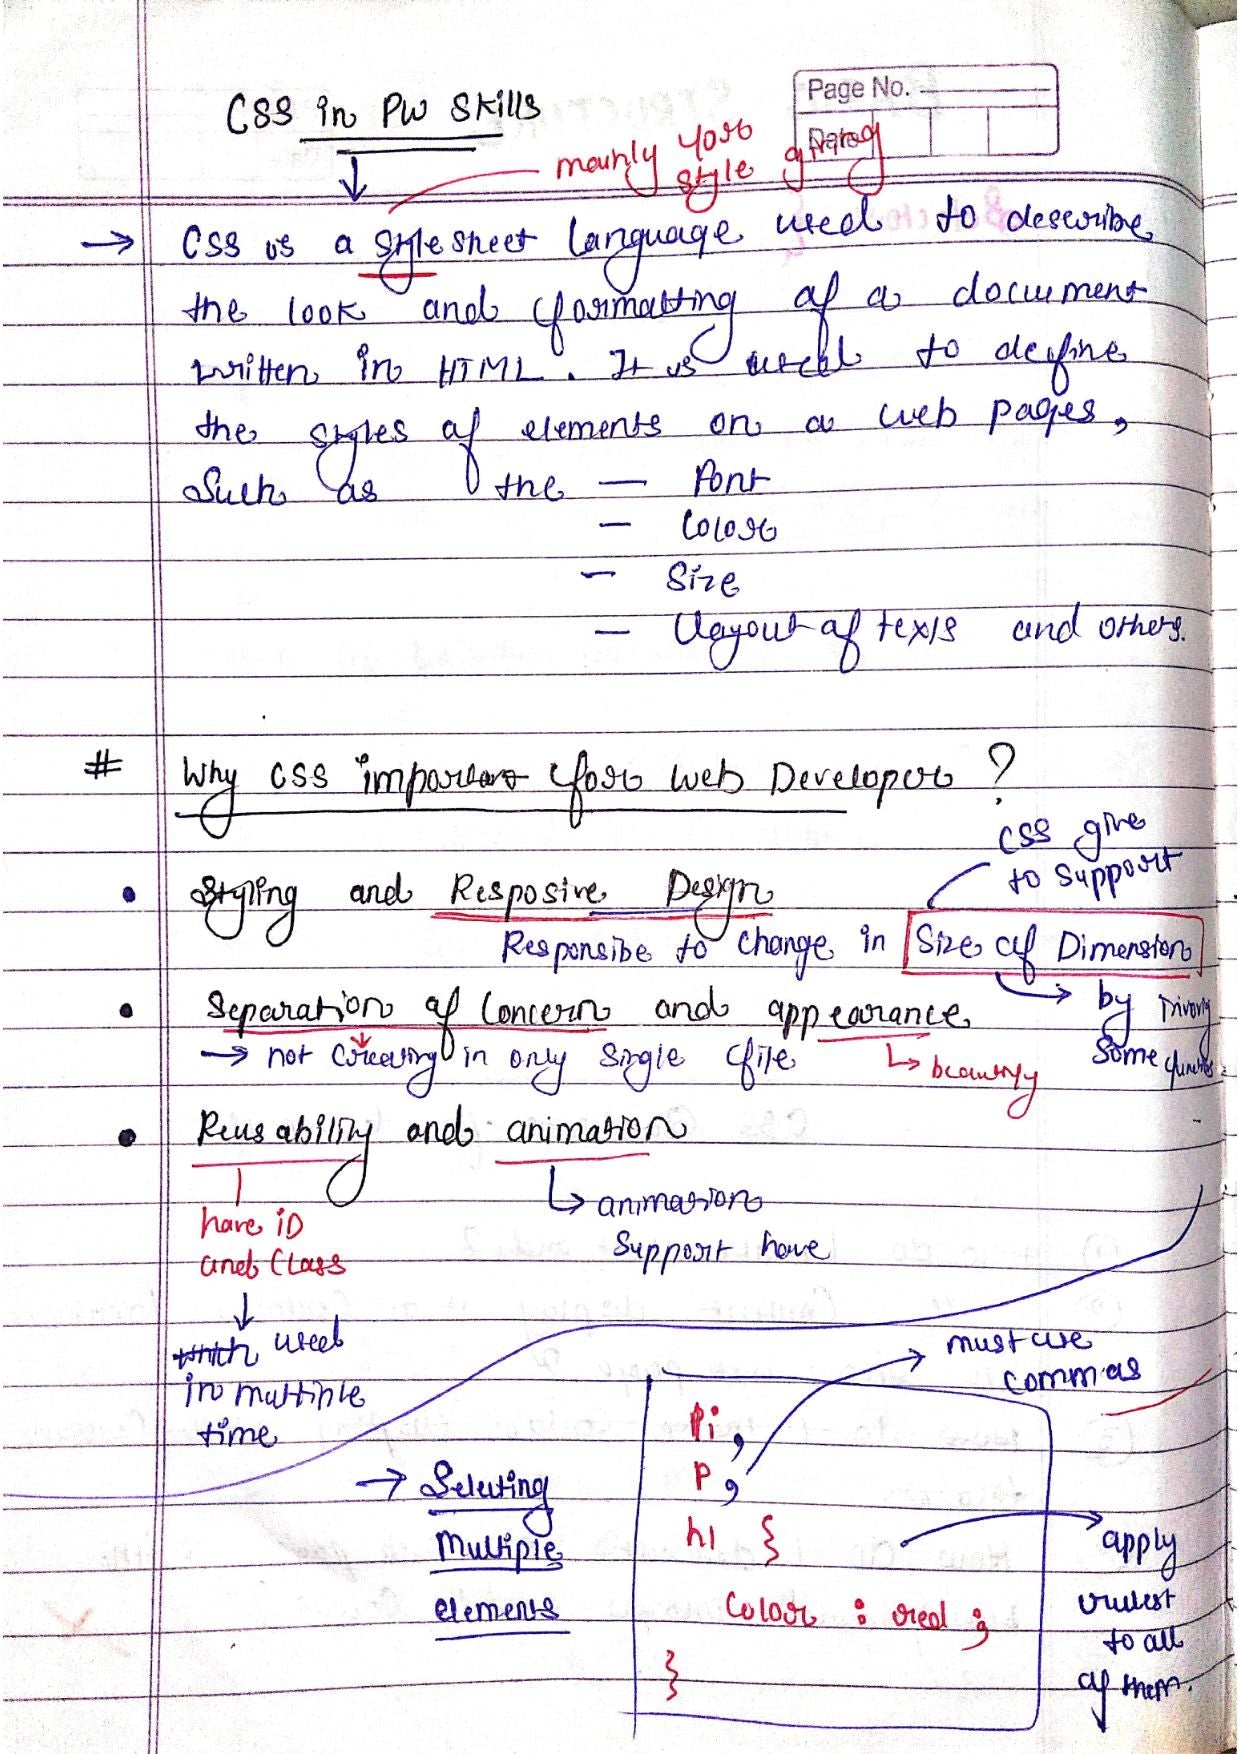 CSS in PW Skills
Page No.
Date
mainly for
style giving
→ CSS is a stylesheet language used to describe
the look and formatting of a document
written in HTML. It is used to define
the styles of elements on a web pages,
Such as the — Font
— Color
— Size
— Layout of texts and others.
# Why CSS important for web Developer ?
CSS give
to support
• Styling and Resposive Design
Responsibe to change in Size of Dimension
• Separation of Concern and appearance
→ by
some
→ not creating in only single file
↳ beautify
• Reusability and animation
have iD
and Class
↳ animation
support have
↓
which used
in multiple
time
must use
commas
→ Selecting
Multiple
elements
,
p ,
h1 {
color : red ;
}
apply
to all
of them.